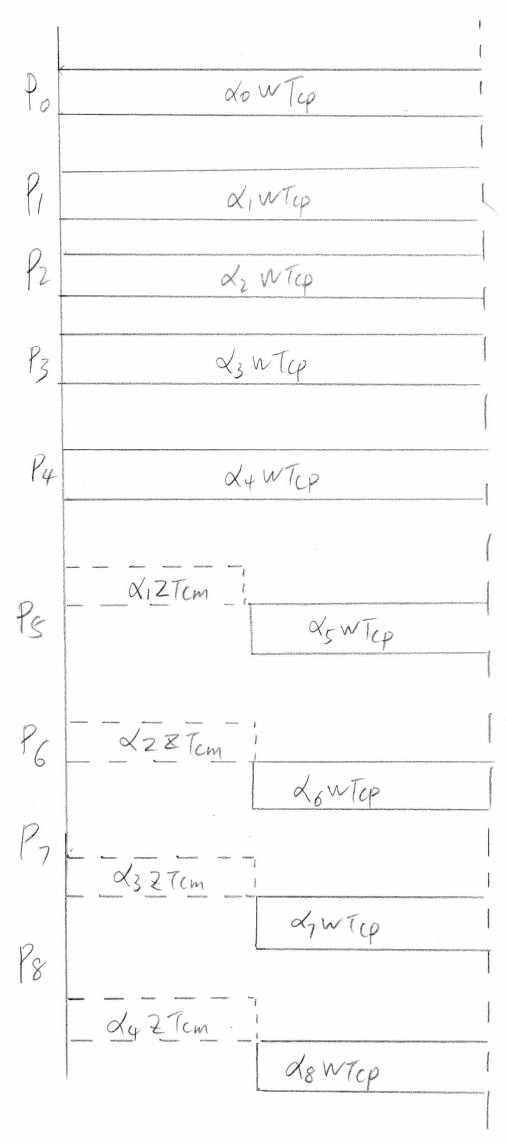 P0 α0 w Tcp
P1 α1 w Tcp
P2 α2 w Tcp
P3 α3 w Tcp
P4 α4 w Tcp
α1 z Tcm
P5 α5 w Tcp
P6 α2 z Tcm
α6 w Tcp
P7
α3 z Tcm
α7 w Tcp
P8
α4 z Tcm
α8 w Tcp